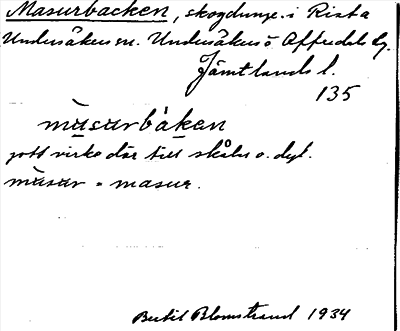 Masurbacken, skogdunge i Rista
Undersåkers sn. Undersåkers o. Offerdals tg.
Jämtlands l.
135
màsarbàken
gott virke där till skålar o. dyl.
màsar = masur.
Bertil Blomstrand 1934